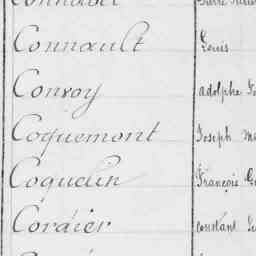 Connault Louis
Conroy adolphe
Coquemont Joseph
Coquelin François
Cordier constant